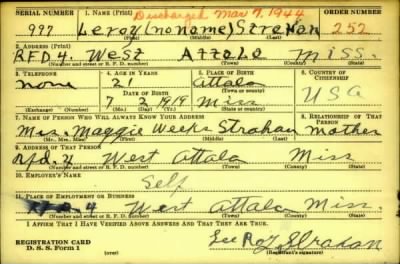 SERIAL NUMBER 1. NAME (Print) Discharged Mar 7, 1944 ORDER NUMBER
997 Leroy (no name) Strahan 252
(First) (Middle) (Last)
2. ADDRESS (Print)
RFD 4. West Attala Miss.
(Number and street or R. F. D. number) (Town) (County) (State)
3. TELEPHONE 4. AGE IN YEARS 5. PLACE OF BIRTH 6. COUNTRY OF CITIZENSHIP
none 21 Attala
DATE OF BIRTH (Town or county)
7 2 1919 Miss USA
(Exchange) (Number) (Mo.) (Day) (Yr.) (State or country)
7. NAME OF PERSON WHO WILL ALWAYS KNOW YOUR ADDRESS 8. RELATIONSHIP OF THAT PERSON
Mrs. Maggie Weeks Strahan Mother
(Mr., Mrs., Miss) (First) (Middle) (Last)
9. ADDRESS OF THAT PERSON
Rfd. 4 West Attala Miss
(Number and street or R. F. D. number) (Town) (County) (State)
10. EMPLOYER'S NAME
Self
11. PLACE OF EMPLOYMENT OR BUSINESS
RFD. 4 West Attala Miss.
(Number and street or R. F. D. number) (Town) (County) (State)
I AFFIRM THAT I HAVE VERIFIED ABOVE ANSWERS AND THAT THEY ARE TRUE.
REGISTRATION CARD
D. S. S. Form 1 (over) (Registrant's signature)
Lee Roy Strahan